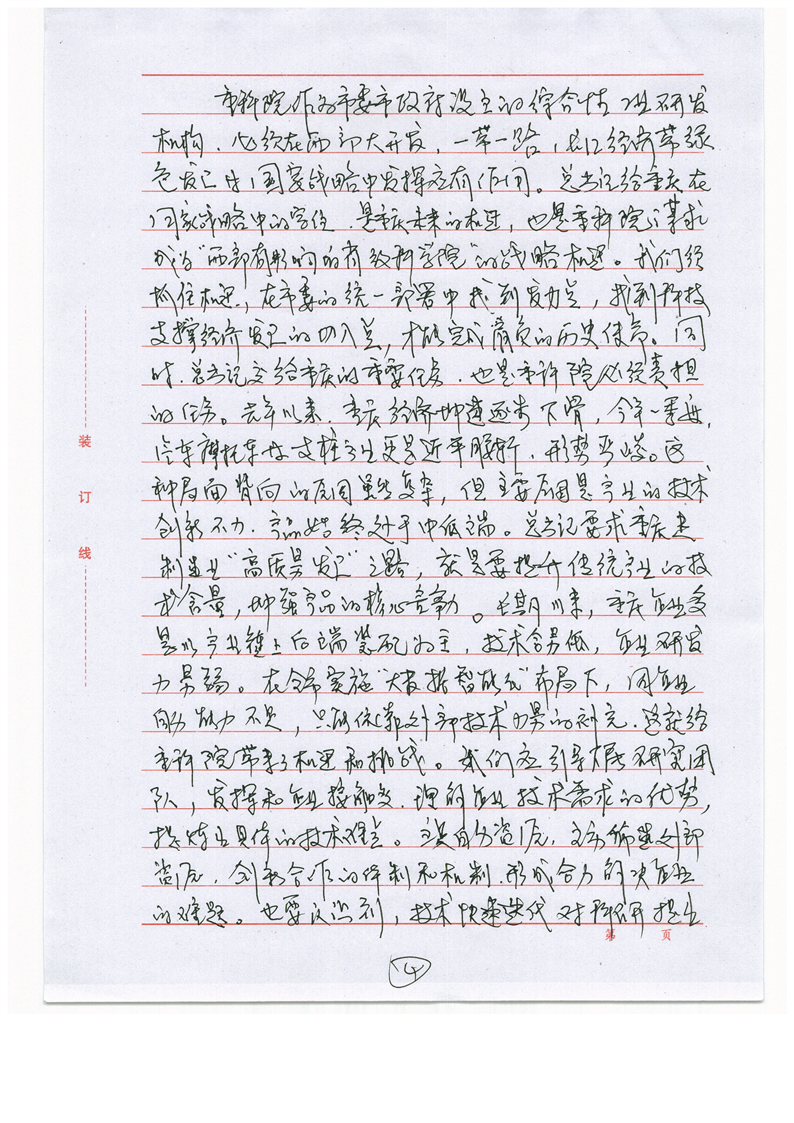 重科院作为市委市政府设立的综合性工业研发
机构，必须在西部大开发，一带一路，长江经济带绿
色发展等国家战略中发挥应有作用。总书记给重庆在
国家战略中的定位，是重庆未来的机遇，也是重科院谋求
成为“西部有影响的有效科学院”的战略机遇。我们须
抓住机遇，在市委的统一部署中找到发力点，找到科技
支撑经济发展的切入点，才能完成肩负的历史使命。同
时，总书记交给重庆的重要任务，也是重科院必须责担
的任务。去年以来，重庆经济增速逐步下滑，今年一季度，
汽车摩托车等支柱产业更是近乎腰斩，形势严峻。这
种局面背向的原因虽然复杂，但主要原因是产业的技术
创新不力，产品始终处于中低端。总书记要求重庆走
制造业“高质量发展”之路，就是要提升传统产业的技
术含量，增强产品的核心竞争力。长期以来，重庆企业多
是以产业链上后端装配为主，技术含量低，企业研发
力量弱。在全市实施“大数据智能化”布局下，问企业
自身能力不足，只能依靠外部技术力量的补充，这就给
重科院带来了机遇和挑战。我们应引导发展研究团
队，发挥和企业接触多，理解企业技术需求的优势，
提炼出具体的技术难点。立足自身资源，主动偏进外部
资源，创新合作的体制和机制，形成合力解决企业
的难题。也要认识到，技术快速迭代对科研提出
第 页
装
订
线
4